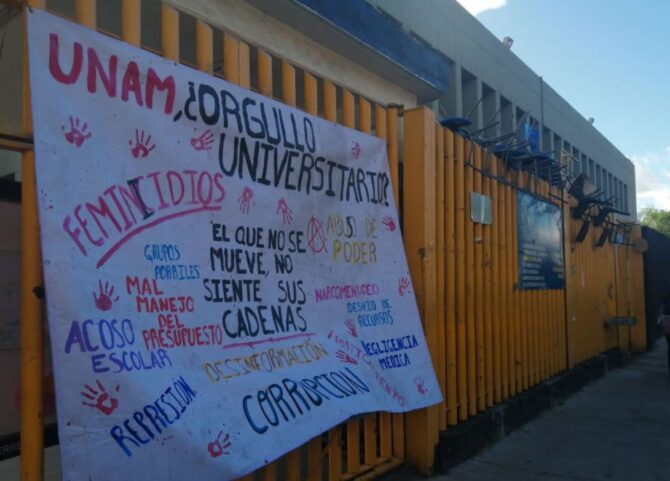 UNAM, ¿ORGULLO
UNIVERSITARIO?
FEMINICIDIOS
ABUSO DE
PODER
GRUPOS
PORRILES
EL QUE NO SE
MUEVE, NO
SIENTE SUS
CADENAS
MAL
MANEJO
DEL
PRESUPUESTO
NARCOMENUDEO
DESVIO DE
RECURSOS
ACOSO
ESCOLAR
DESINFORMACIÓN
NEGLIGENCIA
MEDICA
REPRESIÓN
CORRUPCION